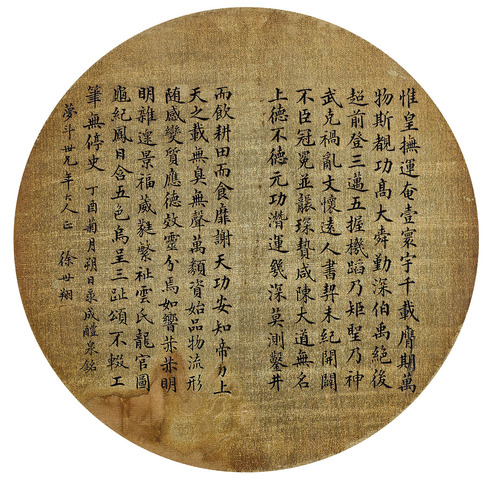 惟皇撫運奄壹寰宇千載膺期萬
物斯覩功高大舜勤深伯禹絕後
超前登三邁五握機蹈乃矩聖乃神
武克禍亂文懷遠人書契未紀開闢
不臣冠冕並襲琛贄咸陳大道無名
上德不德元功潛運幾深莫測鑿井
而飲耕田而食靡謝天功安知帝力上
天之載無臭無聲萬類資始品物流形
随感變質應德效靈兮焉如響赫赫明
明雜遝景福葳蕤繁祉雲氏龍官圖
龜紀鳳日含五色烏呈三趾頌不輟工
筆無停史 丁酉菊月朔日录成醴泉銘
夢斗世兄年大人正 徐世翔